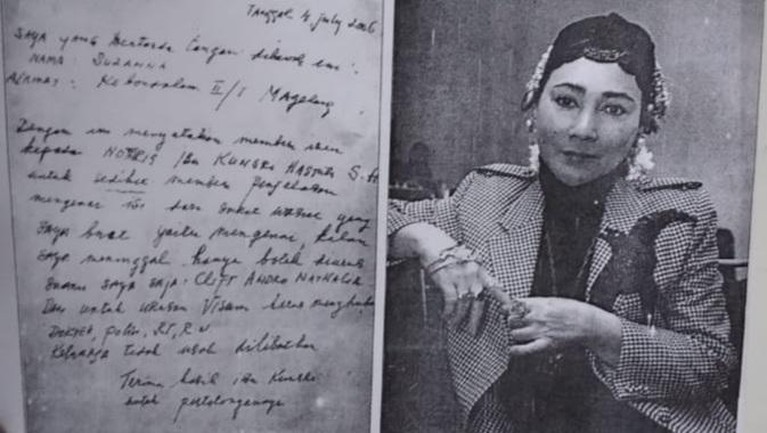 Tanggal 4 July 2006
Saya yang bertanda tangan dibawah ini :
Nama : Suzanna
Alamat : Kebondalem II/I Magelang
Dengan ini menyatakan memberi
kepada Notaris Ibu Kungri S.H
untuk memberi penjelasan
mengenai isi dari wasiat yang
saya buat yaitu mengenai, kalau
saya meninggal hanya boleh diurus
suami saya saja : Clift Andro Nathalia
Dan untuk urusan Visum harus
Dokter, Polisi, RT, RW
Keluarga tidak usah dilibatkan
Terima kasih Ibu
untuk pertolongannya